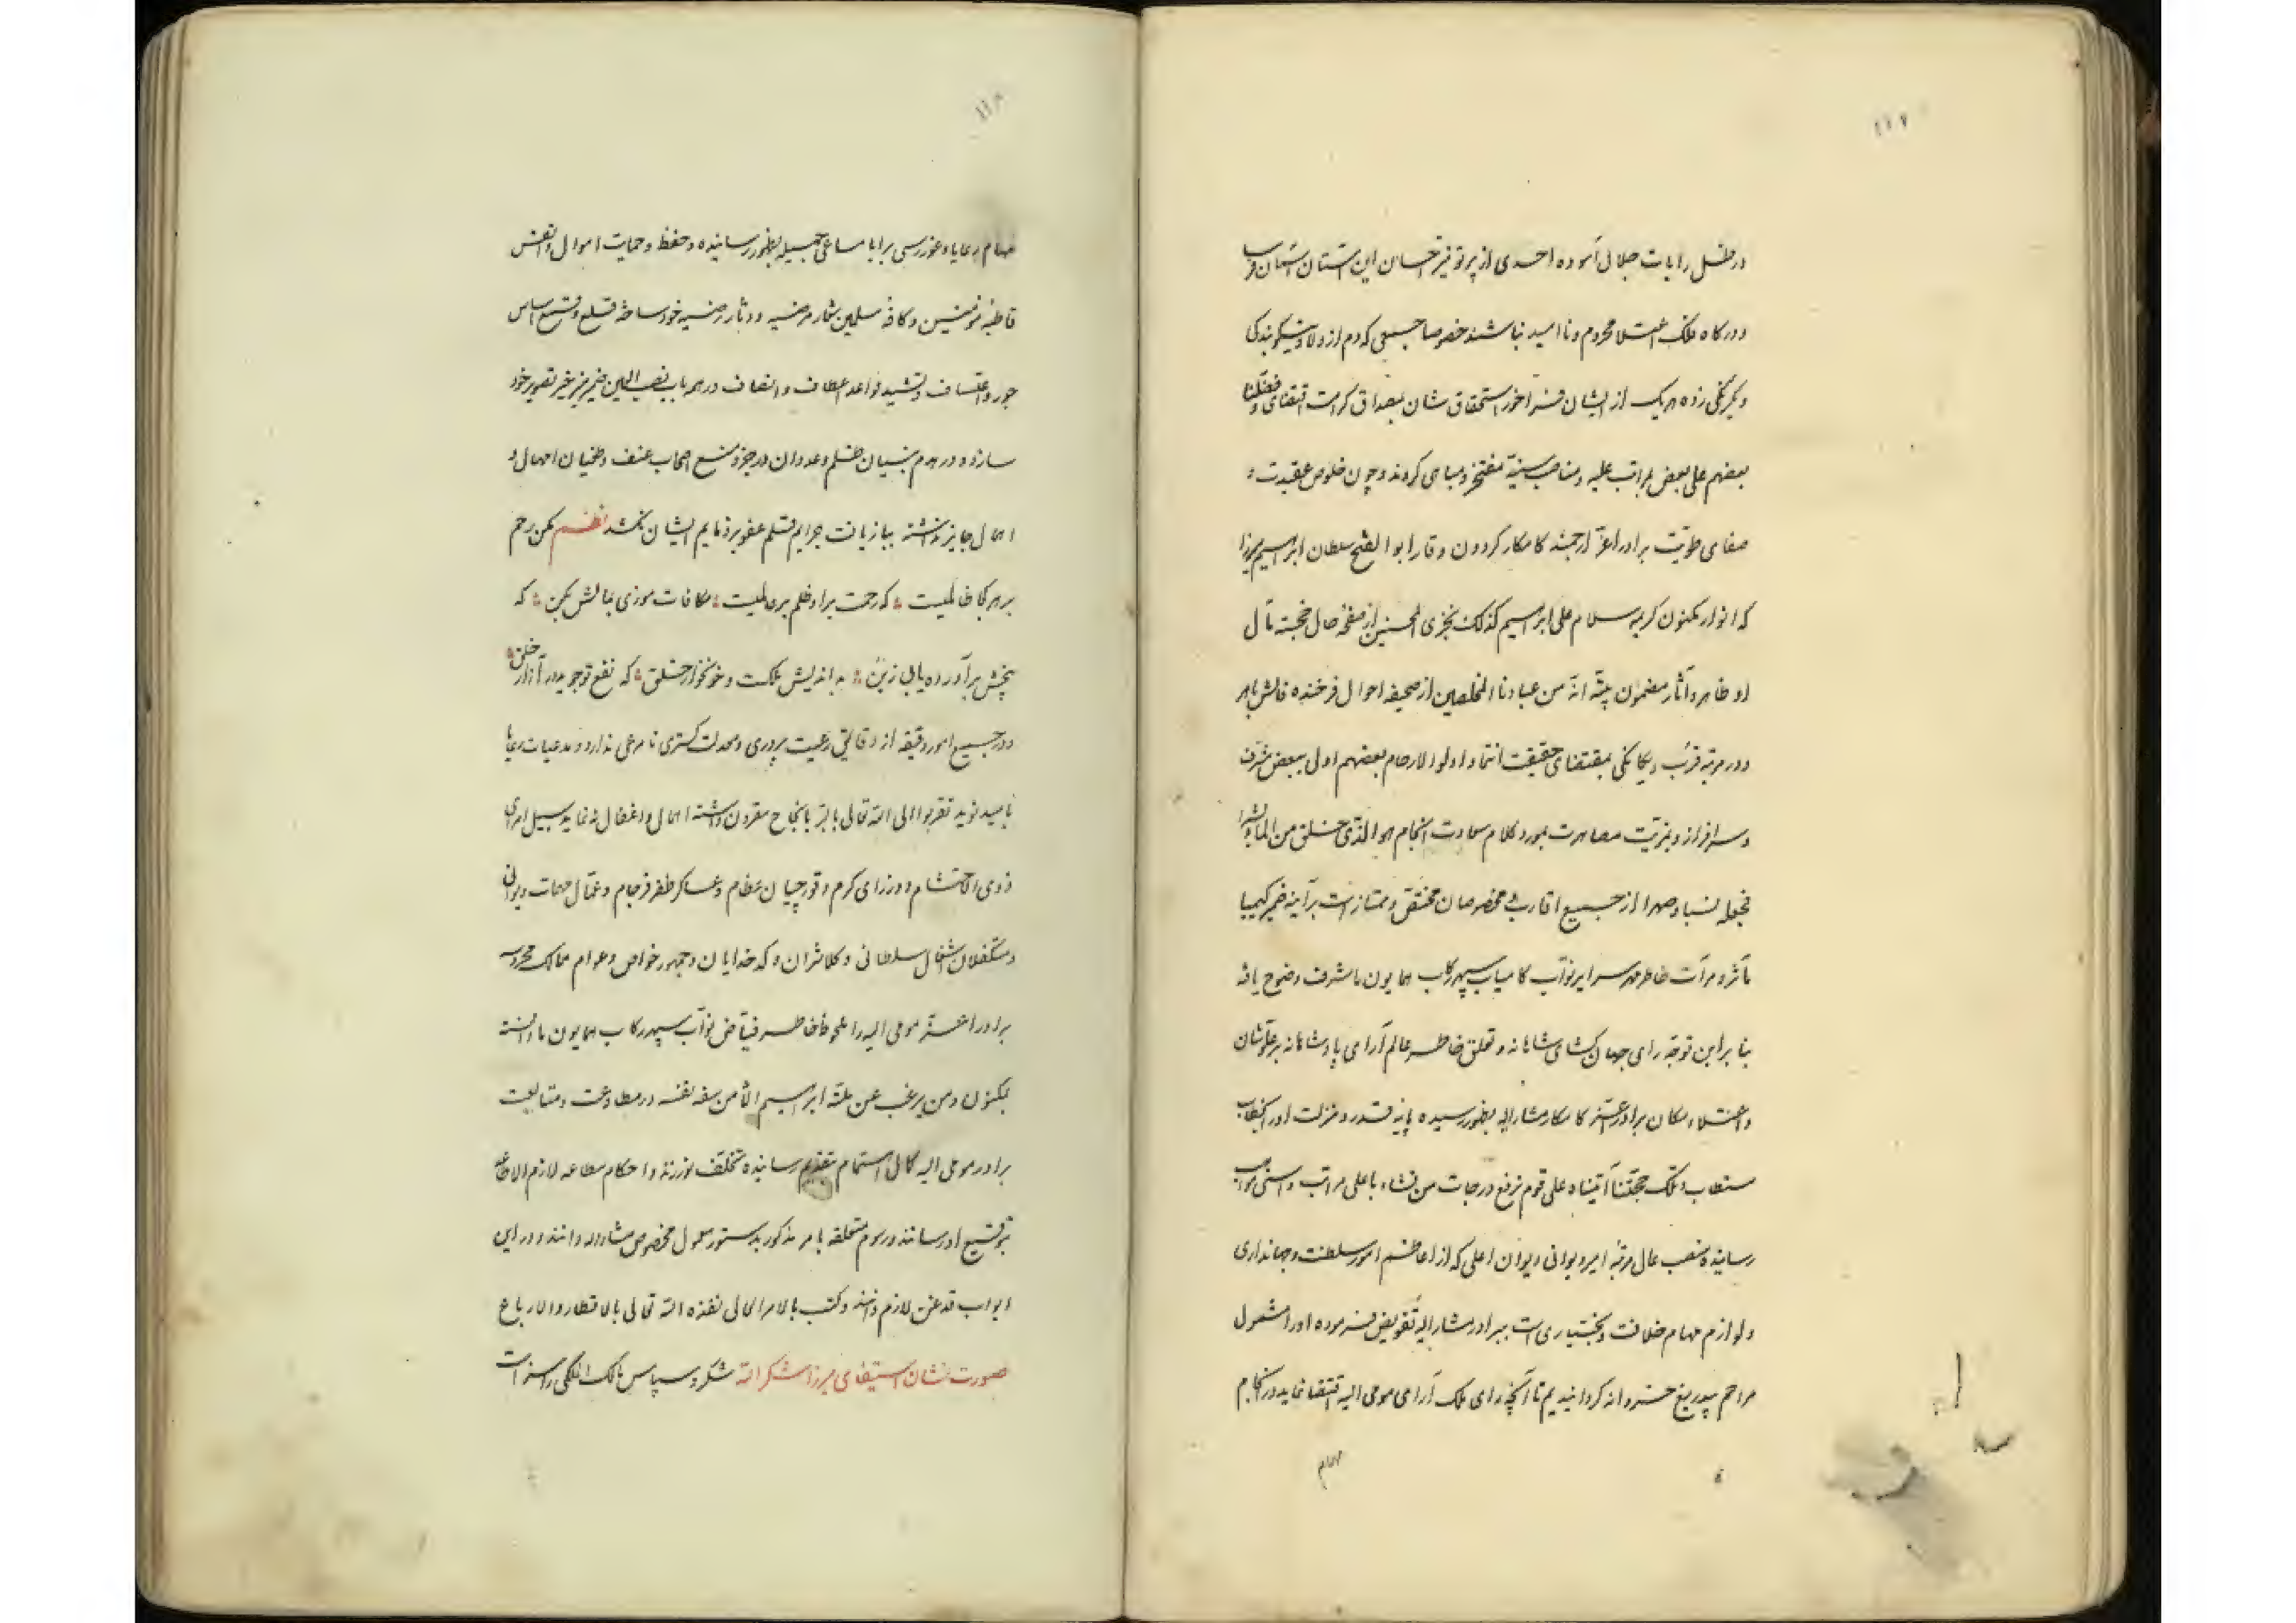 ۱۱۷
در ظل رایات جلال آسوده احدی از پرتو نیر احسان این آستان آسمان
و درگاه فلک اعتلا محروم و ناامید نباشند خصوصا جمعی که دم از ولا و نیکو بندگی
و یکرنگی زده هر یک از ایشان فراخور استحقاق شان بمصداق کرامت اقتضای فضلنا
بعضهم علی بعض بمراتب علیه و مناصب سنیه مفتخر و مباهی کردند و چون خلوص عقیدت و
صفای طویت برادر اعز ارجمند کامکار گردون وقار ابو الفتح سلطان ابراهیم میرزا
که انوار مکنون کریمه سلام علی ابراهیم کذلک نجزی المحسنین از صفحه حال خجسته مآل
او ظاهر و آثار مضمون انه من عبادنا المخلصین از صحیفه احوال فرخنده فالش باهر
و در مرتبه قرب و یگانگی بمقتضای حقیقت انتماء اولوا الارحام بعضهم اولی ببعض مشرف
و سرافراز و بمزیت مصاهرت بمورد کلام سعادت انجام هو الذی خلق من الماء بشرا
فجعله نسبا و صهرا از جمیع اقارب و مخصوصان مختص و ممتاز است بر آینه ضمیر کیمیا
مآثر و مرآت خاطر مهر سرایر نواب کامیاب سپهر رکاب همایون ما شرف وضوح یافته
بنا بر این توجه رای جهان گشای شاهانه و تعلق خاطر عالم آرای پادشاهانه بر علو شان
و اعتلاء مکان برادر اعز کامکار مشار الیه بظهور رسیده پایه قدر و منزلت او را
مستطاب و تلک حجتنا آتیناه علی قوم نرفع درجات من نشاء باعلی مراتب و اسنی مواهب
رسانیده منصب عالی مرتبه امیر دیوانی دیوان اعلی که از اعاظم امور سلطنت و جهانداری
و لوازم مهام خلافت و بختیاری است ببرادر مشار الیه تفویض فرموده او را مشمول
مراحم بیدریغ خسروانه گردانیدیم تا آنچه رای ملک آرای مومی الیه اقتضا نماید در انجام
مهام
۱۱۸
مهام رعایا و غوررسی برایا مساعی جمیله بظهور رسانیده و حفظ و حمایت اموال و انفس
قاطبه مؤمنین و کافه مسلمین شعار مرضیه و دثار رضیه خود ساخته قلع و قمع اساس
جور و اعتساف و تشید قواعد اعطاف و انصاف در هر باب نصب العین ضمیر خود
سازد و در هدم بنیان ظلم و عدوان و زجر و منع اصحاب عنف و طغیان امهال و
اهمال جایز نداشته ببازیافت جرایم قلم عفو بر ذمایم ایشان نکشد نظم مکن رحم
بر هر کجا ظالمیست ؞ که رحمت بر او ظلم بر عالمیست ؞ مکافات موذی بمالش مکن ؞ که
بیخش برآورده باید ز بن ؞ بد اندیش ملکت و خونخوار خلق ؞ که نفع تو جوید در آزار خلق ؞
و در جمیع امور دقیقه از دقایق رعیت پروری و معدلت گستری نامرعی ندارد و مدعیات رعایا
بامید نوید تقربوا الی الله تعالی بالبر بانجاح مقرون داشته اهمال و اغفال ننماید سبیل امرای
ذوی الاحتشام و وزرای کرام و قورچیان عظام و عساکر ظفر فرجام و عمال مهمات دیوانی
و متکفلان اشغال سلطانی و کلانتران و کدخدایان و جمهور خواص و عوام ممالک محروسه
برادر اعز مومی الیه را ملحوظ خاطر فیاض نواب سپهر رکاب همایون ما دانسته
بمکنون و من یرغب عن ملة ابراهیم الا من سفه نفسه در مطاوعت و متابعت
برادر مومی الیه کمال اهتمام بتقدیم رسانیده تخلف نورزند و احکام مطاعه لازم الاطاعه
بتوقیع او رسانند و رسوم متعلقه بامر مذکور بدستور معمول مخصوص مشار الیه دانند و در این
ابواب قدغن لازم دانند و کتب بالامر العالی نفذه الله تعالی بالاقطار و الارباع
صورت نشان استیفای میرزا شکرالله شکر و سپاس مالک الملکی را سزاست